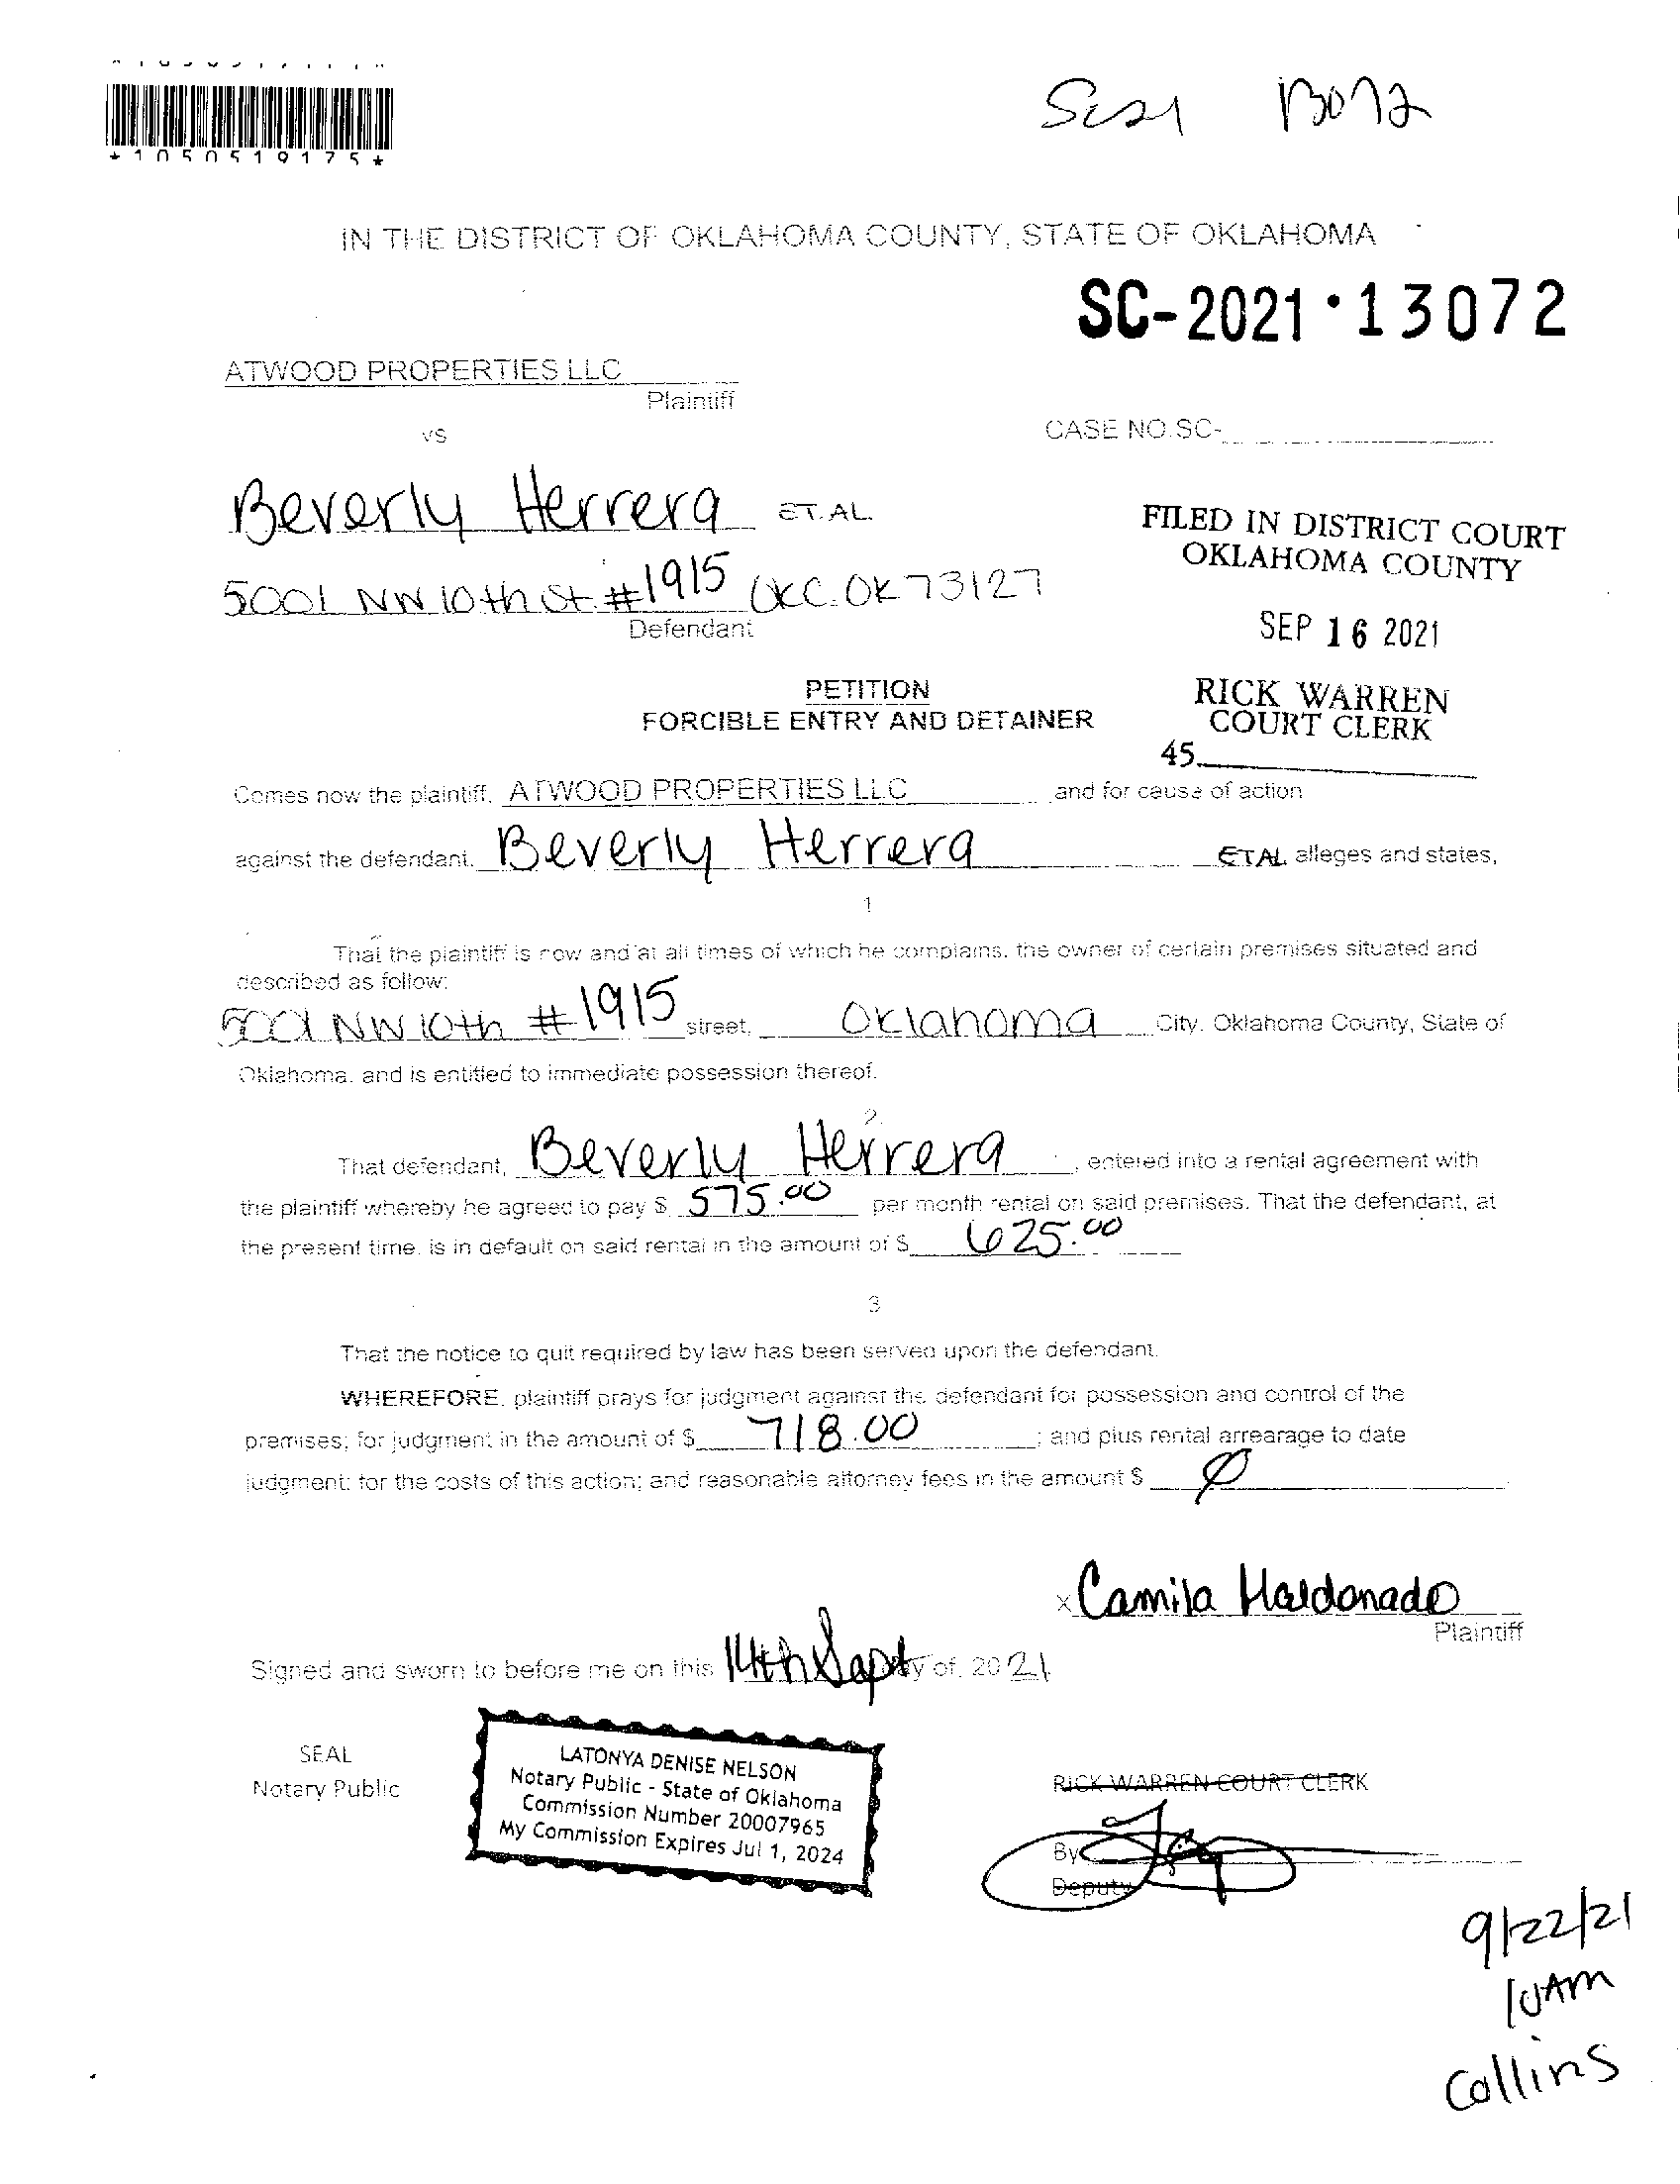 *1050519175*
SC21 13072
IN THE DISTRICT OF OKLAHOMA COUNTY, STATE OF OKLAHOMA
SC-2021·13072
ATWOOD PROPERTIES LLC
Plaintiff
vs
CASE NO.SC-
Beverly Herrera ET.AL.
FILED IN DISTRICT COURT
OKLAHOMA COUNTY
5001 NW 10th St. #1915 OKC. OK 73127
Defendant
SEP 16 2021
PETITION
FORCIBLE ENTRY AND DETAINER
RICK WARREN
COURT CLERK
45
Comes now the plaintiff, ATWOOD PROPERTIES LLC and for cause of action
against the defendant, Beverly Herrera ETAL alleges and states,
1
That the plaintiff is now and at all times of which he complains, the owner of certain premises situated and
described as follow:
5001 NW 10th #1915 street, Oklahoma City, Oklahoma County, State of
Oklahoma, and is entitled to immediate possession thereof.
2
That defendant, Beverly Herrera, entered into a rental agreement with
the plaintiff whereby he agreed to pay $ 575.00 per month rental on said premises. That the defendant, at
the present time, is in default on said rental in the amount of $ 625.00
3
That the notice to quit required by law has been served upon the defendant.
WHEREFORE, plaintiff prays for judgment against the defendant for possession and control of the
premises; for judgment in the amount of $ 718.00; and plus rental arrearage to date
judgment; for the costs of this action; and reasonable attorney fees in the amount $ Ø
x Camila Maldonado
Plaintiff
Signed and sworn to before me on this 14th Sept day of, 2021
SEAL
Notary Public
LATONYA DENISE NELSON
Notary Public - State of Oklahoma
Commission Number 20007965
My Commission Expires Jul 1, 2024
RICK WARREN COURT CLERK
By
Deputy
9/22/21
10AM
Collins